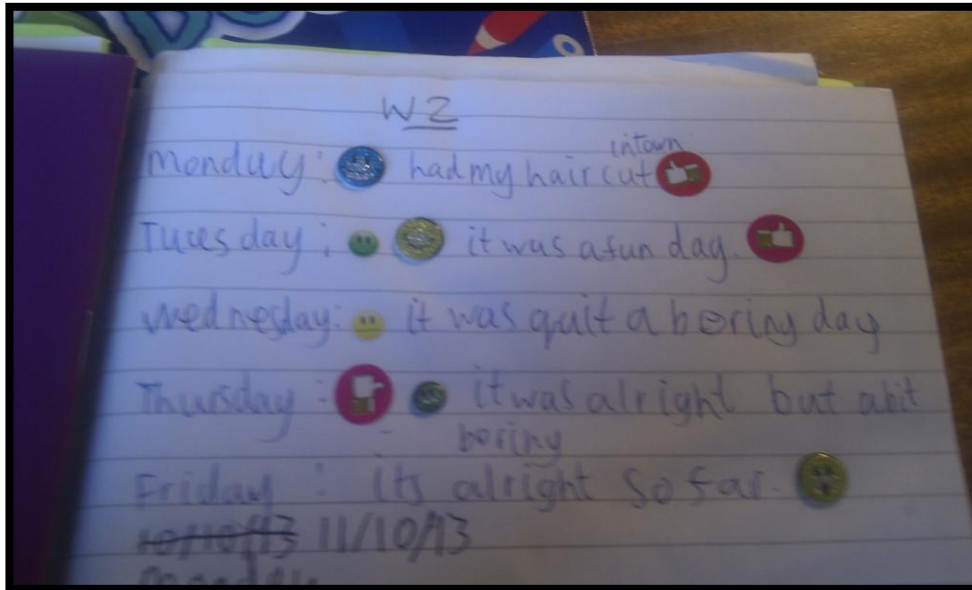 W2
monday: had my hair cut intown
Tuces day: it was a fun day.
Wednesday: it was quit a boring day
Thursday: it was alright but abit
boring
Friday: its alright so far.
10/10/13 11/10/13
monday